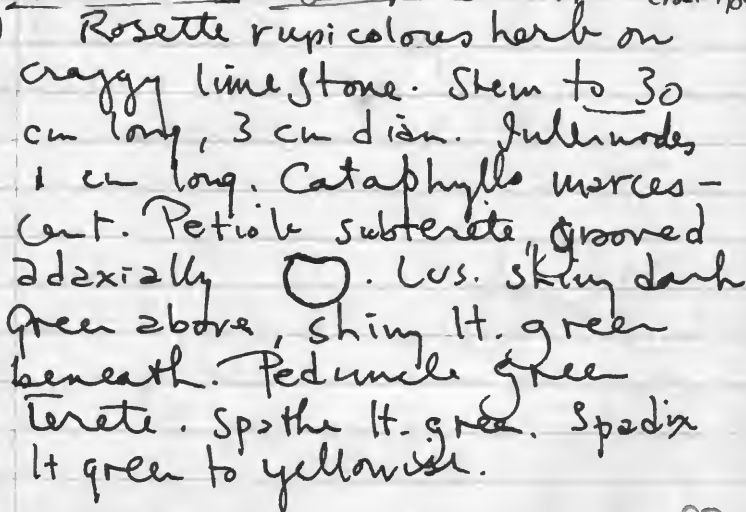 Rosette rupicolous herb on
craggy limestone. Stem to 30
cm long, 3 cm diam. Internodes
1 cm long. Cataphylls marces-
cent. Petiole subterete, grooved
adaxially . Lvs. shiny dark
green above, shiny lt. green
beneath. Peduncle green
terete. Spathe lt. green. Spadix
lt green to yellowish.